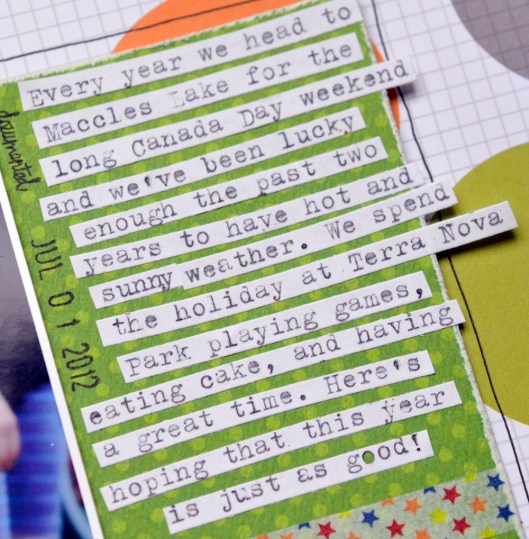 Every year we head to
Maccles Lake for the
long Canada Day weekend
and we've been lucky
enough the past two
years to have hot and
sunny weather. We spend
the holiday at Terra Nova
Park playing games,
eating cake, and having
a great time. Here's
hoping that this year
is just as good!
documented
JUL 01 2012